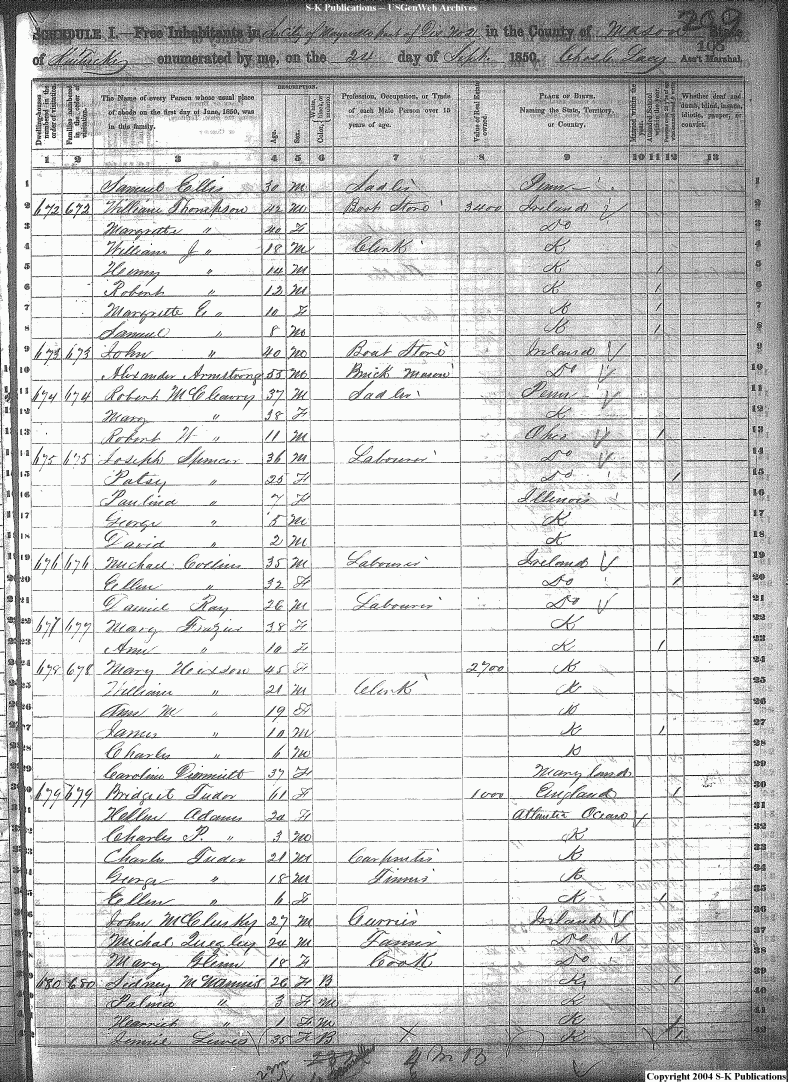 S-K Publications – USGenWeb Archives
209
SCHEDULE I.—Free Inhabitants in City of Maysville in the County of Mason State
of Kentucky enumerated by me, on the 24 day of Sept. 1850. Ass't Marshal.
Dwelling-houses numbered in the order of visitation. Families numbered in the order of visitation. The Name of every Person whose usual place of abode on the first day of June, 1850, was in this family. DESCRIPTION. Age. Sex. Color, Profession, Occupation, or Trade of each Male Person over 15 years of age. Value of Real Estate owned. PLACE OF BIRTH. Naming the State, Territory, or Country. Married within the year. Whether deaf and dumb, blind, insane, idiotic, pauper, or convict.
1 2 3 4 5 6 7 8 9 10 11 12 13
1 Samuel Ellis 30 M Sadler Penn 1
2 672 672 William Thompson 42 M Boot Store 3400 Ireland 2
3 Margrette " 40 F Do 3
4 William J " 18 M Clerk K 4
5 Henry " 14 M K 1 5
6 Robert " 12 M K 1 6
7 Margrette E " 10 F K 1 7
8 Samuel " 8 M K 1 8
9 673 673 John " 40 M Boot Store Ireland 9
10 Alexander Armstrong 55 M Brick Mason Do 10
11 674 674 Robert McCleary 37 M Sadler Penn 11
12 Mary " 38 F K 12
13 Robert H " 11 M Ohio 1 13
14 675 675 Joseph Spencer 36 M Labourer Do 14
15 Patsy " 25 F Do 1 15
16 Paulina " 7 F Illinois 16
17 George " 5 M K 17
18 David " 2 M K 18
19 676 676 Michael Collins 35 M Labourer Ireland 19
20 Ellen " 32 F Do 1 20
21 Daniel Ray 26 M Labourer Do 21
22 677 677 Mary Frazier 38 F K 22
23 Ann " 10 F K 1 23
24 678 678 Mary Hixson 45 F 2700 K 24
25 William " 21 M Clerk K 25
26 Ann M " 19 F K 26
27 James " 10 M K 1 27
28 Charles " 6 M K 28
29 Caroline 37 F Maryland 29
30 679 679 Bridget Tudor 61 F 1000 England 1 30
31 Hellen Adams 24 F Atlantic Ocean 31
32 Charles P. " 3 M K 32
33 Charles Tudor 21 M Carpenter K 33
34 George " 18 M Tinner K 34
35 Ellen " 6 F K 1 35
36 John McClusky 27 M Currier Ireland 36
37 Michal Quegley 24 M Tanner Do 37
38 Mary Glinn 18 F Cook Do 38
39 680 680 Sidney McMannis 26 F B Ky 1 39
40 Palina " 3 F M K 40
41 Harriet " 1 F M K 1 41
42 Jennie Lewis 35 F B X K 1 42
Copyright 2004 S-K Publications